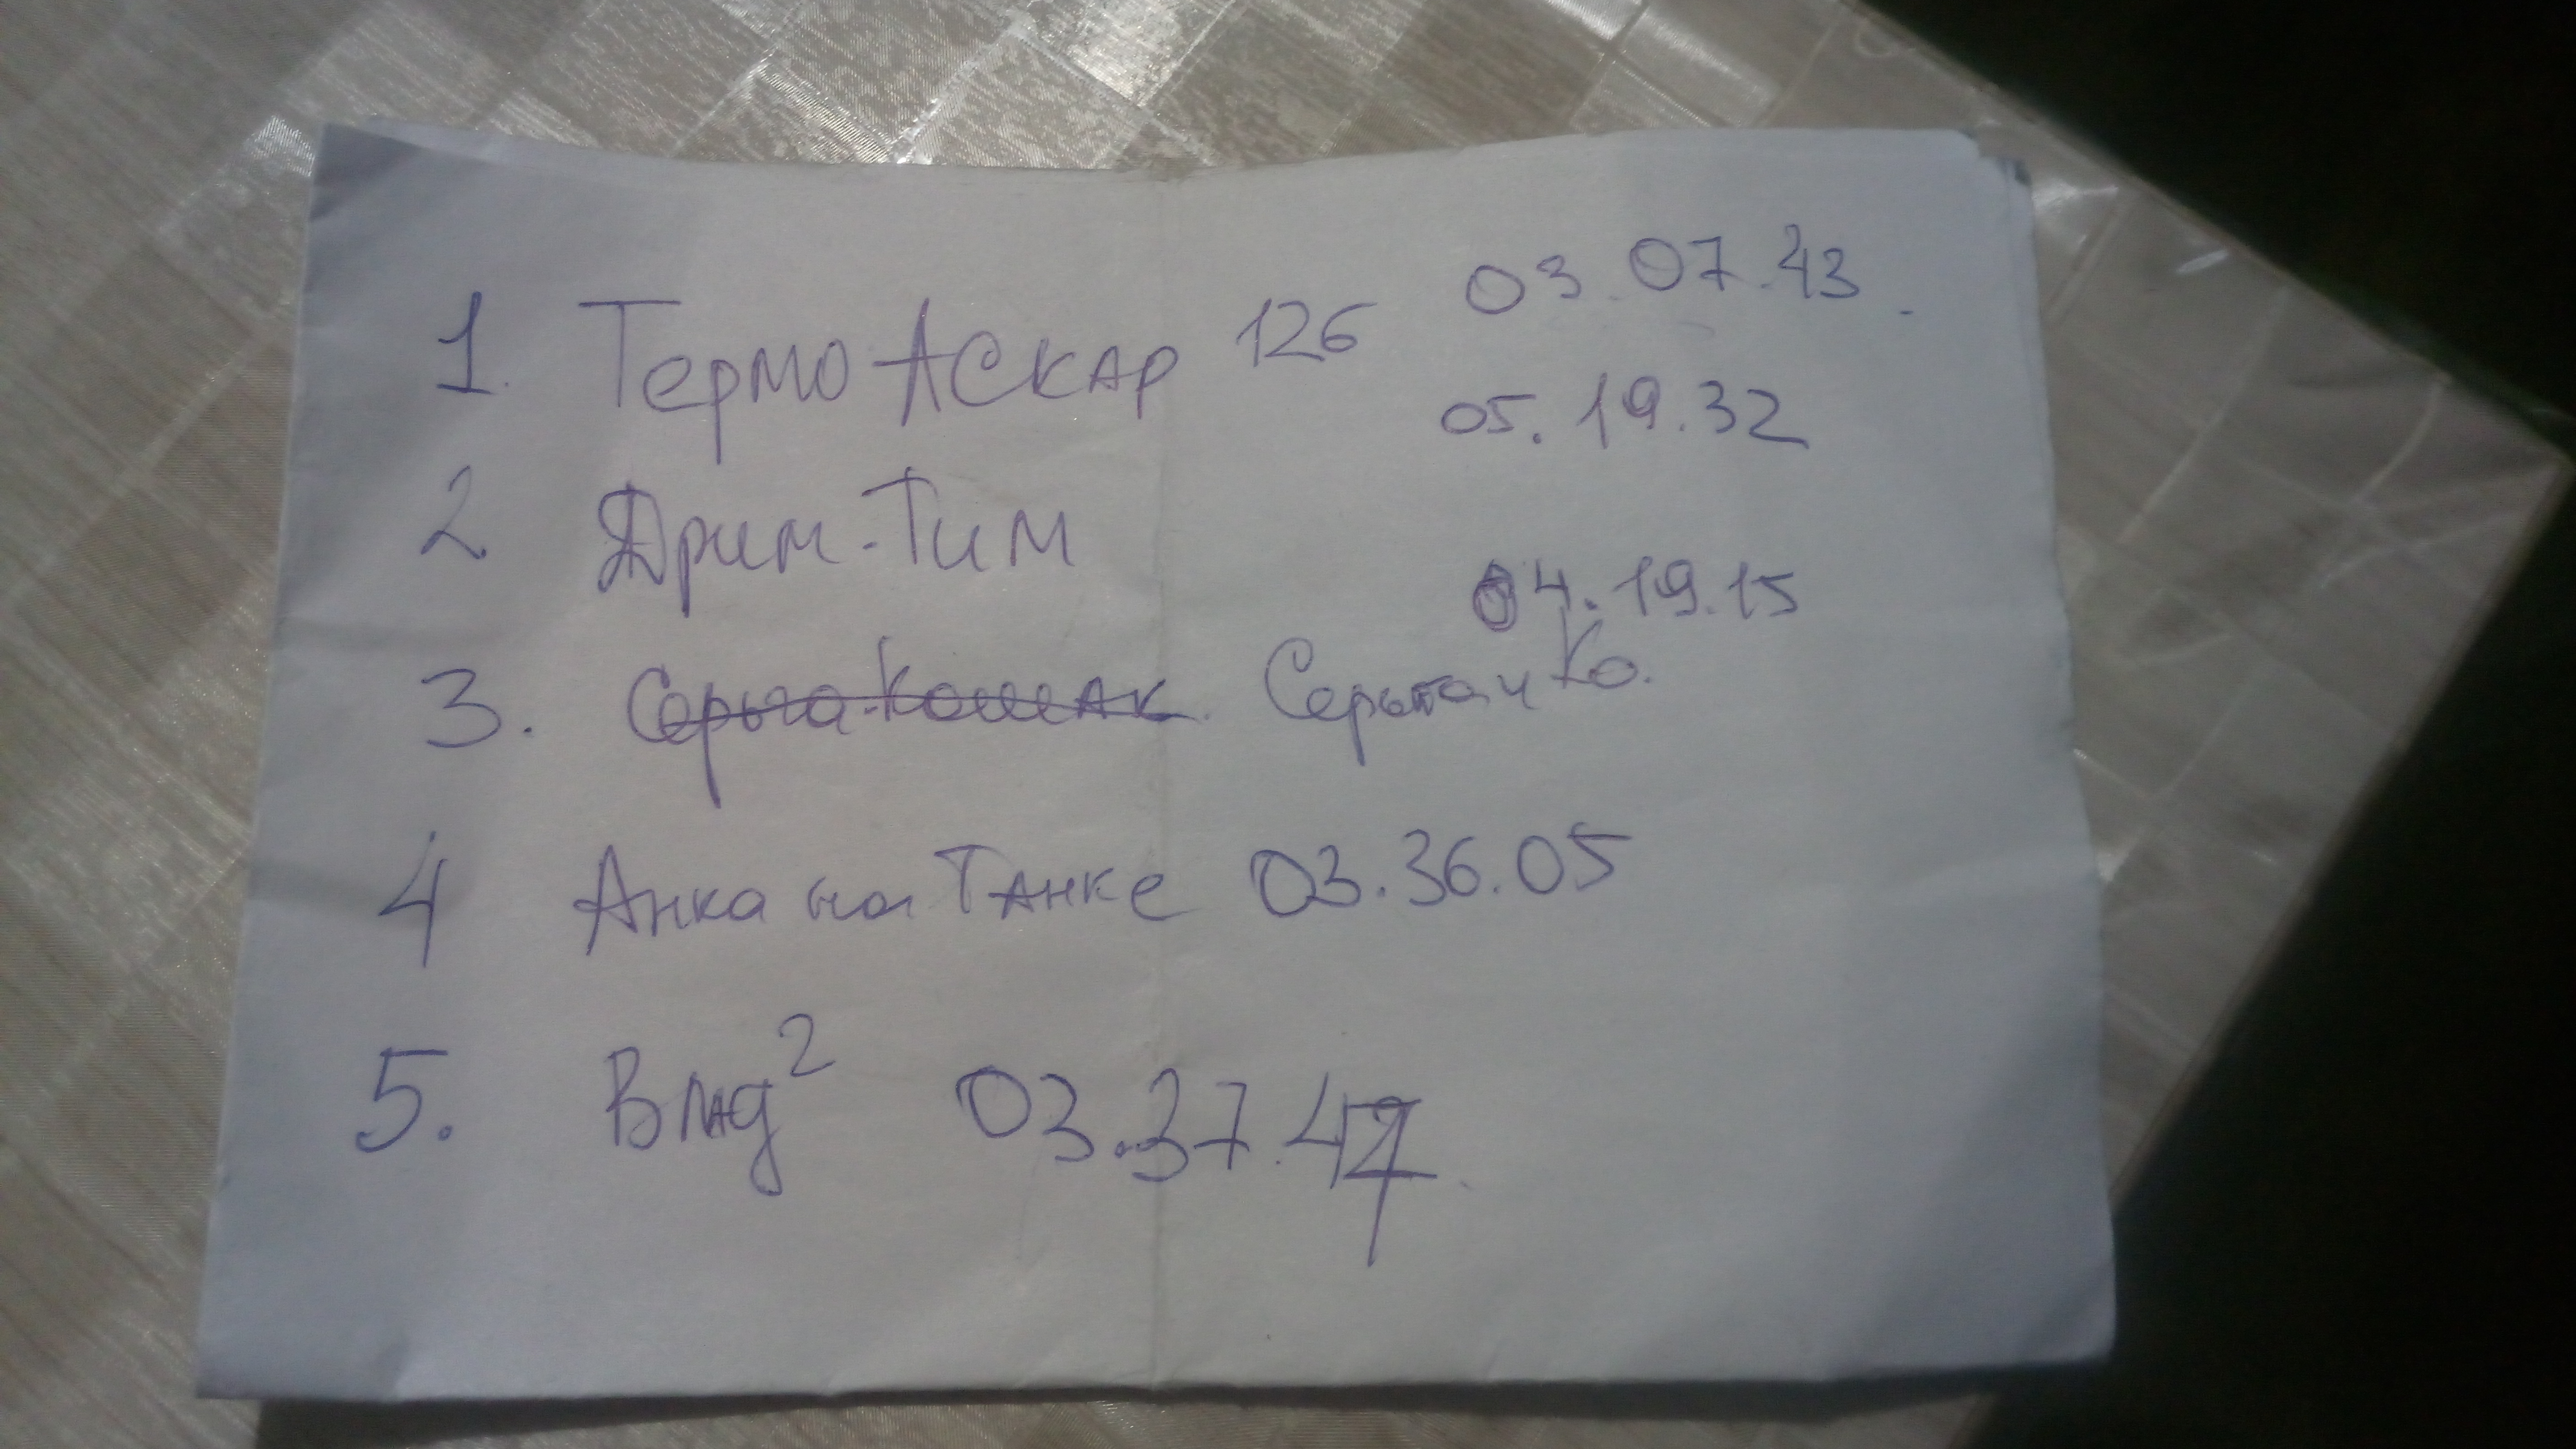 1. Термо Аскар 126 03.07.43.
05.19.32
2 Дрим-Тим
04.19.15
3. Серьга-Кошак. Серьга и Ко.
4 Анка на Танке 03.36.05
5. Влад² 03.37.47.